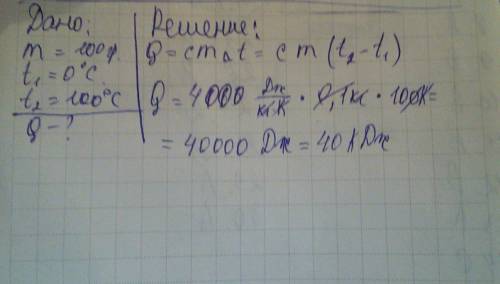 Дано:
m = 100г.
t₁ = 0°C
t₂ = 100°C
Q – ?
Решение:
Q = cm△t = cm(t₂ – t₁)
Q = 4000 Дж/кг·К · 0,1кг · 100К =
= 40000 Дж = 40 кДж